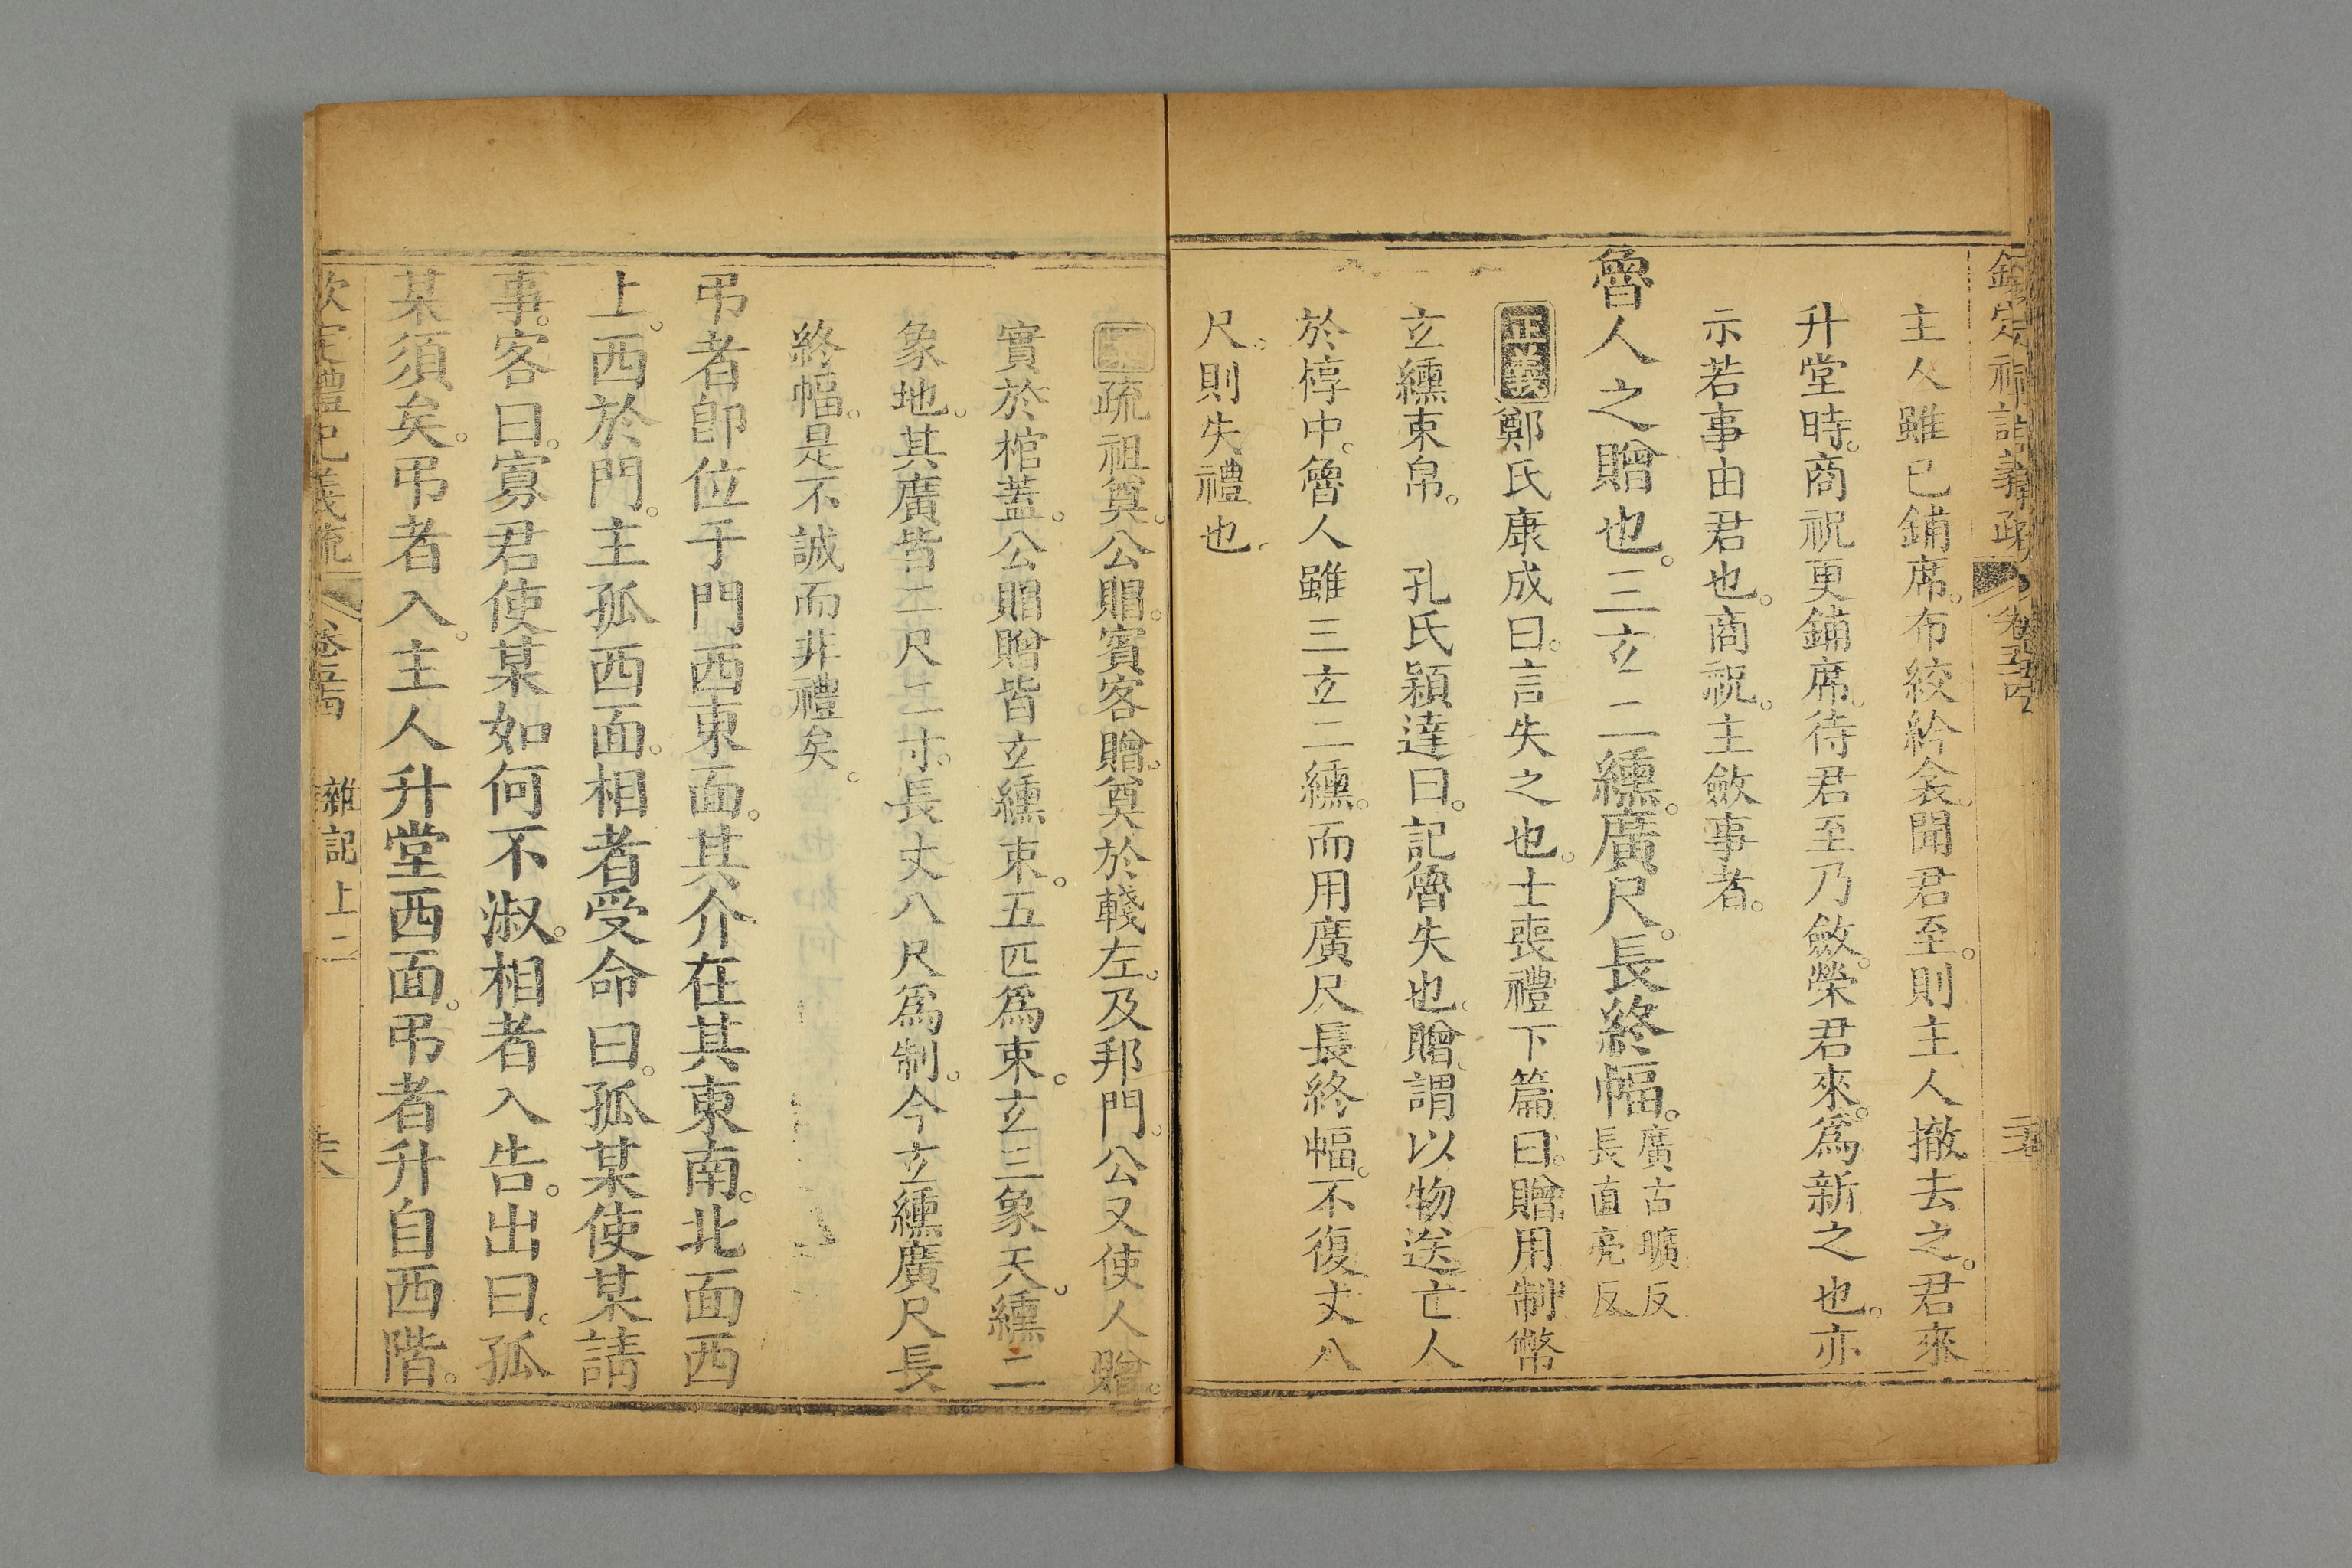 主人雖已鋪席。布絞紟衾。聞君至。則主人撤去之。君來
升堂時。商祝更鋪席。待君至乃斂。榮君來。爲新之也。亦
示若事由君也。商祝。主斂事者。
魯人之贈也。三玄二纁。廣尺。長終幅。廣古曠反
長直亮反
正義鄭氏康成曰。言失之也。士喪禮下篇曰。贈用制幣
玄纁束帛。 孔氏穎達曰。記魯失也。贈。謂以物送亡人
於椁中。魯人雖三玄二纁。而用廣尺長終幅。不復丈八
尺。則失禮也。
疏祖奠。公賵。賓客贈。奠於輚左。及邦門。公又使人贈。
實於棺蓋。公賵贈皆玄纁束。五匹爲束。玄三象天。纁二
象地。其廣皆二尺二寸。長丈八尺爲制。今玄纁廣尺長
終幅。是不誠而非禮矣。
弔者卽位于門西東面。其介在其東南。北面西
上。西於門。主孤西面。相者受命曰。孤某使某請
事。客曰。寡君使某如何不淑。相者入告。出曰。孤
某須矣。弔者入。主人升堂西面。弔者升自西階。
欽定禮記義疏 卷五 雜記上二